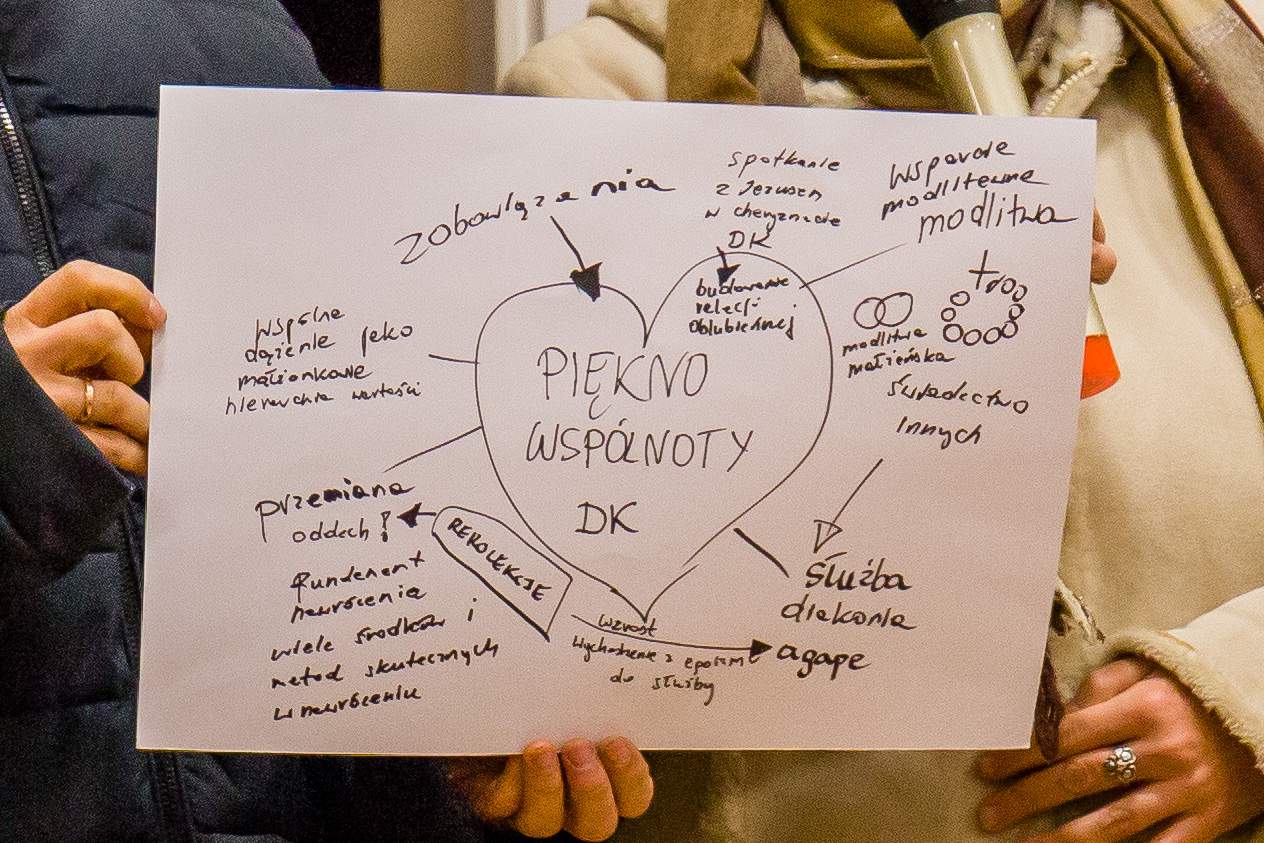 zobowiązania
spotkanie
z Jezusem
w charyzmacie
DK
budowanie
relacji
oblubieńczej
wsparcie
modlitewne
modlitwa
modlitwa
małżeńska
świadectwo
innych
służba
diakonia
PIĘKNO
WSPÓLNOTY
DK
wspólne
dążenie jako
małżonkowie
hierarchia wartości
przemiana
oddech!
REKOLEKCJE
fundament
nawrócenia
wiele środków i
metod skutecznych
w nawróceniu
wzrost
wychodzenie z egoizmu
do służby
agape